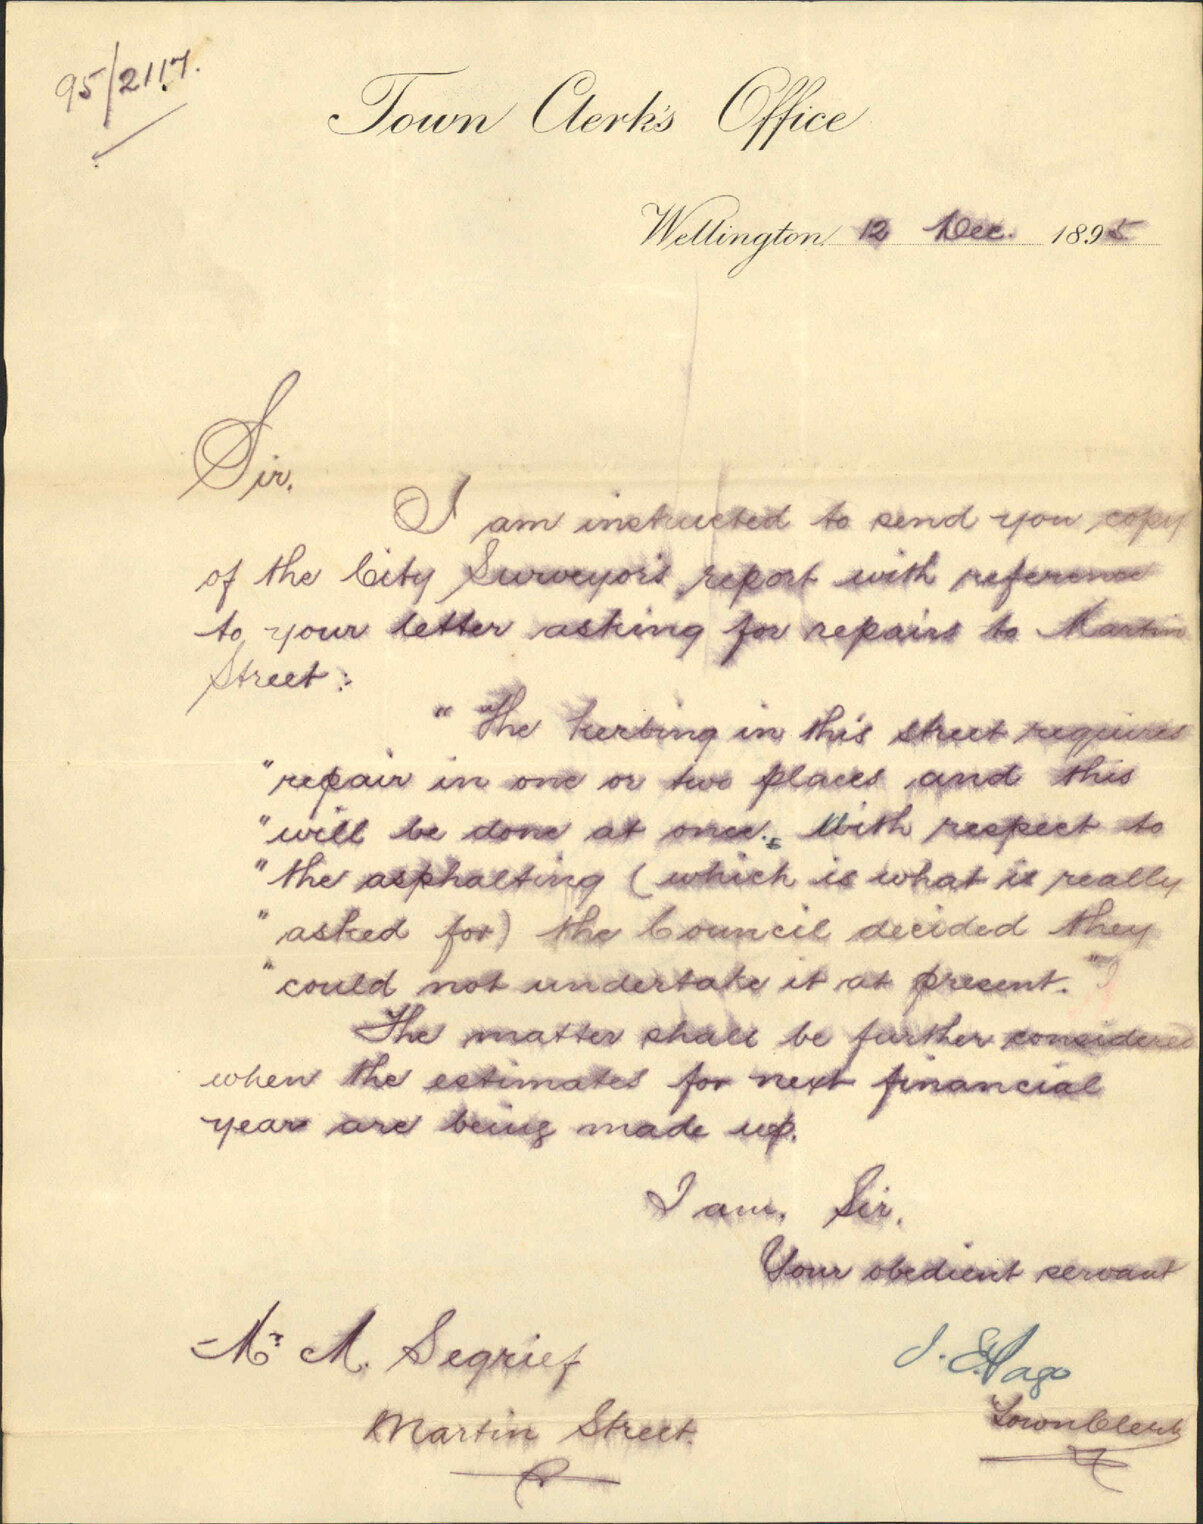 95/2117.
Town Clerk's Office
Wellington 12 Dec. 1895
Sir,
I am instructed to send you copy
of the City Surveyor's report with reference
to your letter asking for repairs to Martin
Street:
"The kerbing in this street requires
"repair in one or two places and this
"will be done at once. With respect to
"the asphalting (which is what is really
"asked for) the Council decided they
"could not undertake it at present."
The matter shall be further considered
when the estimates for next financial
year are being made up.
I am, Sir,
Your obedient servant
Mr. M. Segrief
J. E. Page
Martin Street.
Town Clerk